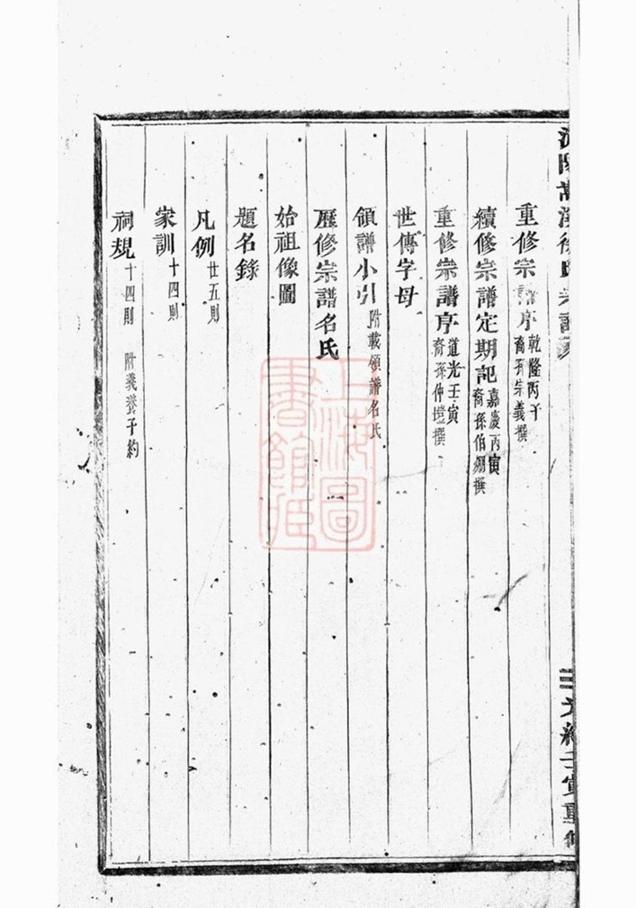 重修宗譜序 乾隆丙子 裔孫宗義撰
續修宗譜定期記 嘉慶丙寅 裔孫伯翔撰
重修宗譜序 道光壬寅 裔孫仲撰
世傳字母
領譜小引 附載領譜名氏
歷修宗譜名氏
始祖像圖
題名錄
凡例 廿五則
家訓 十四則
祠規 十四則 附義養子約
上海圖書館藏